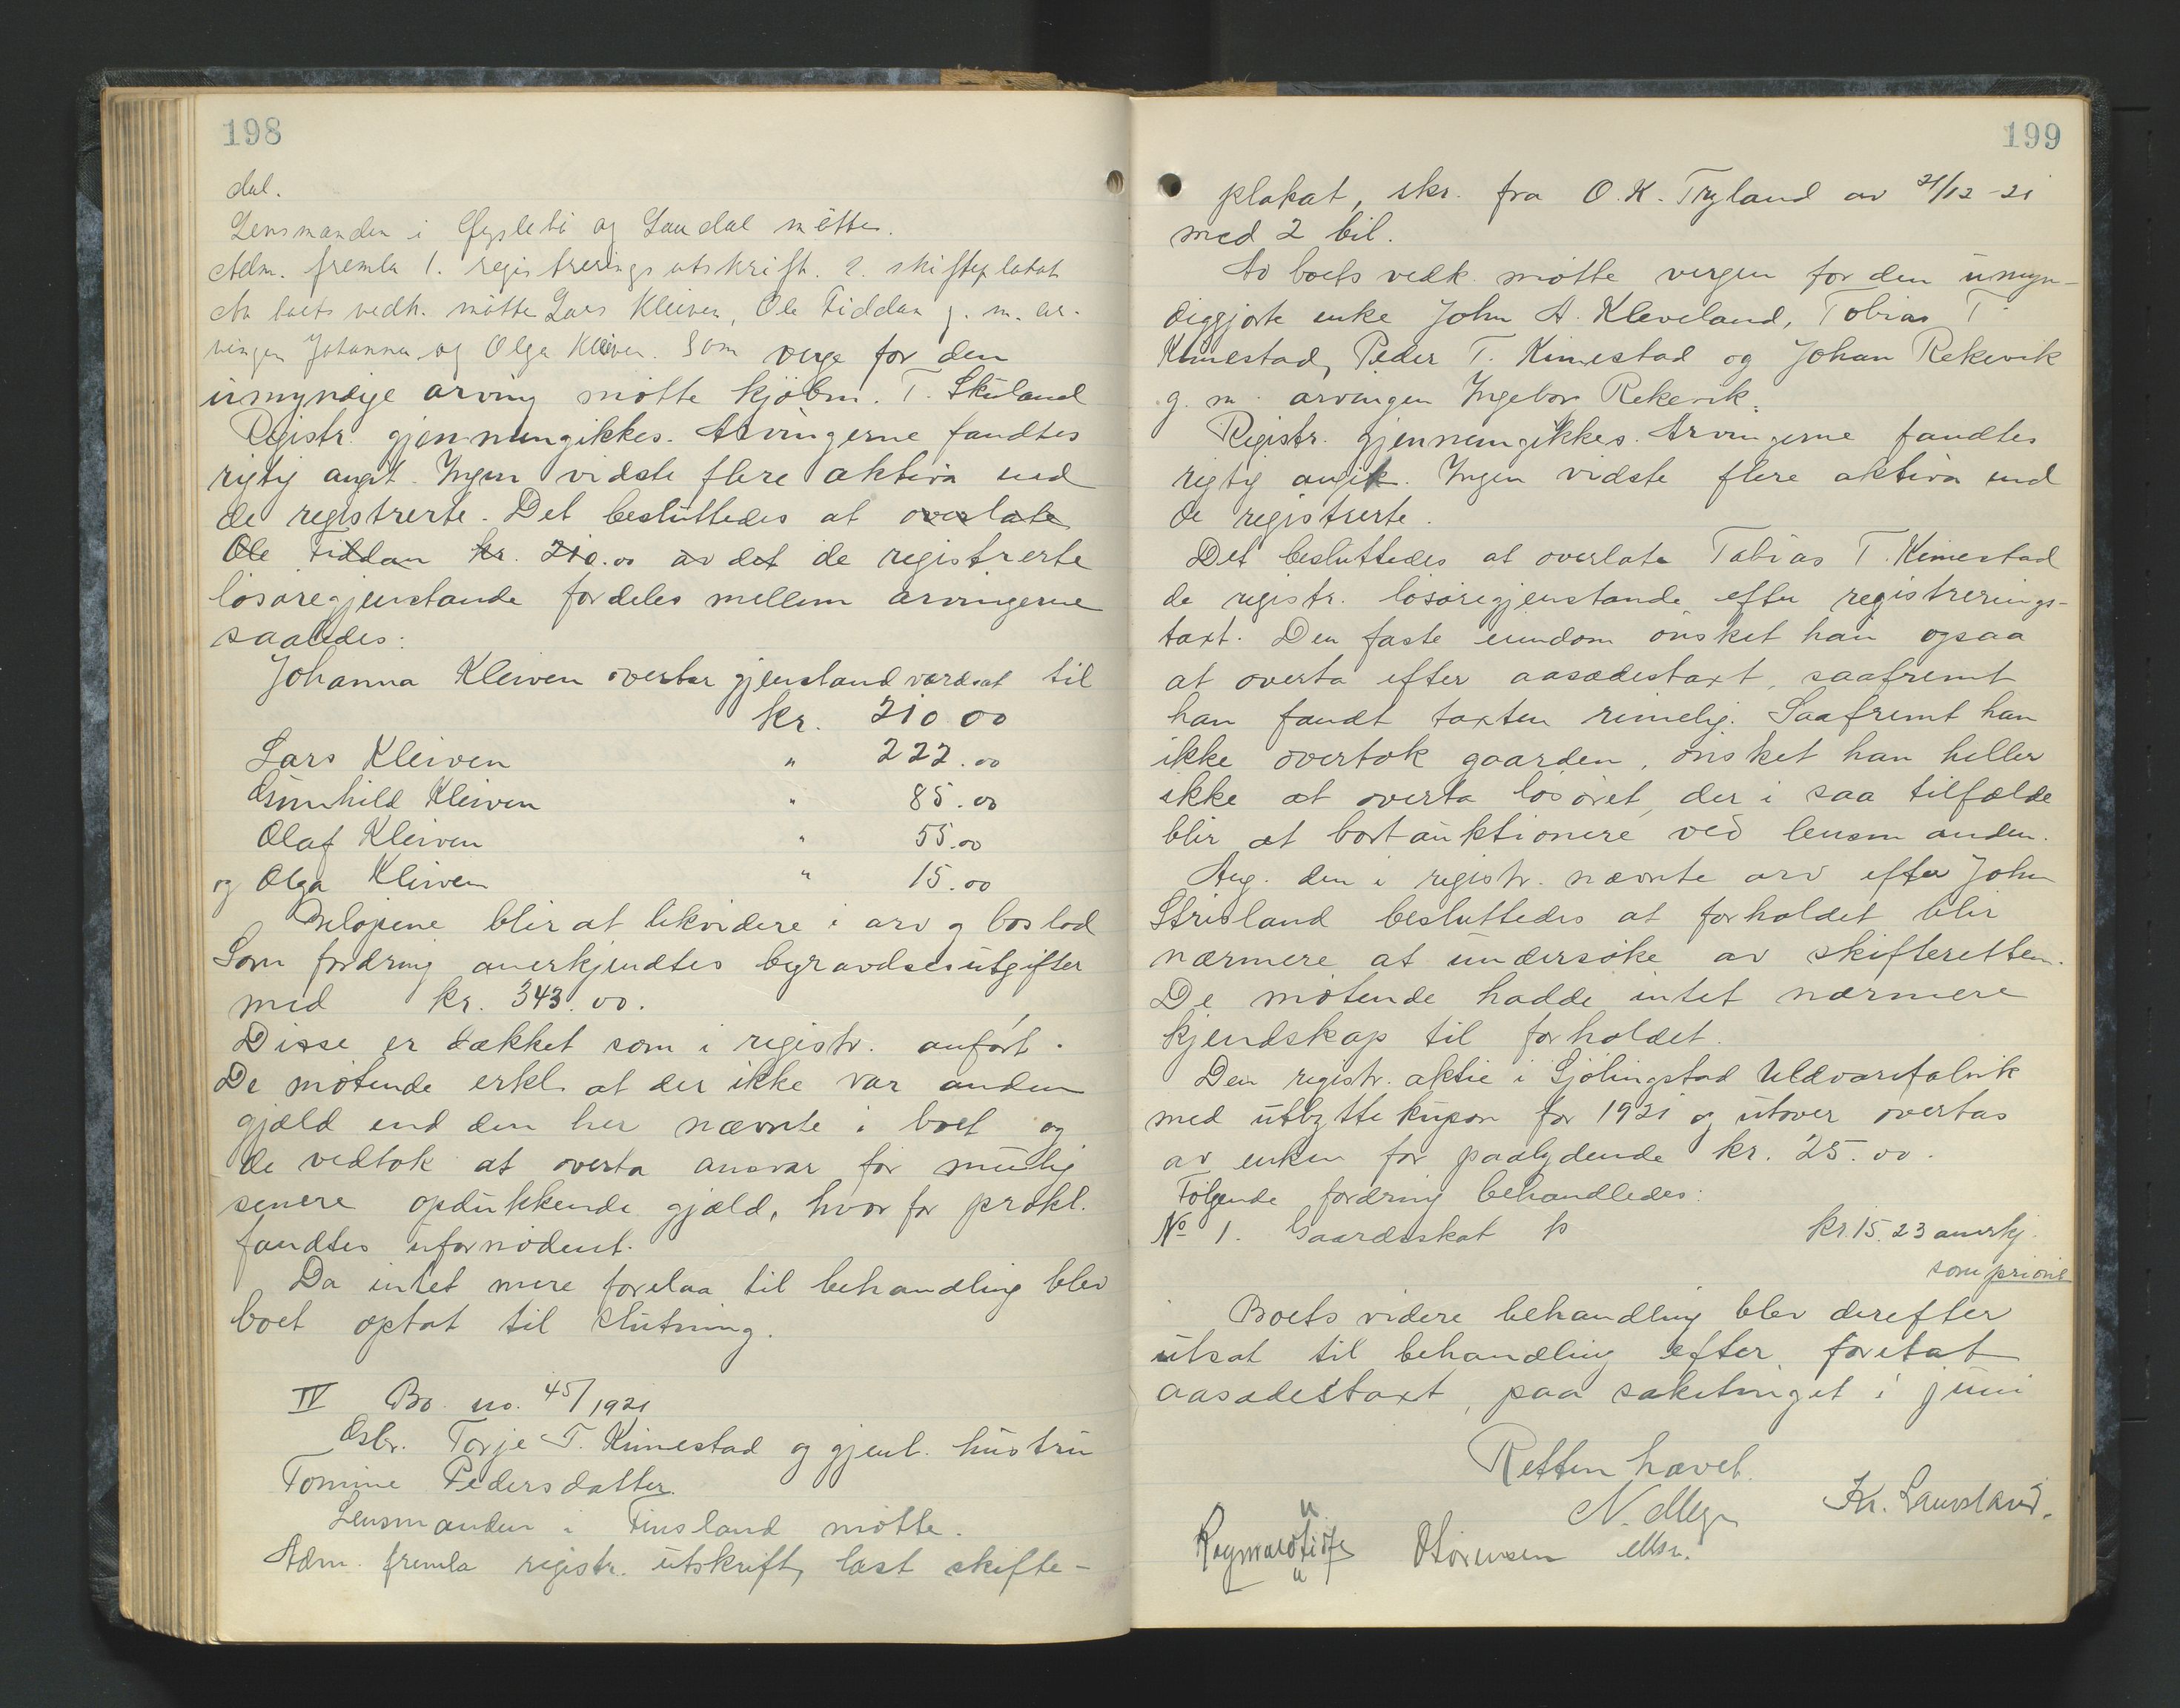 198
dal.
Lensmanden i Øyslebø og Laudal møtte.
Adm. fremla 1. registreringsutskrift. 2. skifteplakat
Av boets vedk. møtte Lars Kleiven, Ole Fiddan g. m. ar-
vingen Johanna og Olga Kleiven. Som verge for den
umyndige arving møtte kjøbm. T. Skuland
Registr. gjennemgikkes. Arvingerne fandtes
rigtig angit. Ingen vidste flere aktiva end
de registrerte. Det besluttedes at overlate
Ole Fiddan kr. 210.00 av det de registrerte
løsøregjenstande fordeles mellem arvingerne
saaledes:
Johanna Kleiven overtar gjenstand værdsat til
kr. 210.00
Lars Kleiven " 222.00
Gunhild Kleiven " 85.00
Olaf Kleiven " 55.00
og Olga Kleiven " 15.00
Beløpene blir at likvidere i arv og boslod
Som fordring anerkjendtes begravelsesutgifter
med kr. 343.00.
Disse er dækket som i registr. anført.
De møtende erkl. at der ikke var anden
gjæld end den her nævnte i boet og
de vedtok at overta ansvar for mulig
senere opdukkende gjæld, hvorfor prokl.
fandtes ufornødent.
Da intet mere forelaa til behandling blev
boet optat til slutning.
IV Bo no. 45/1921
Osbr. Torje T. Kimestad og gjenl. hustru
Tomine Pedersdatter.
Lensmanden i Finsland møtte.
Adm. fremla registr. utskrift, læst skifte-
199
plakat, skr. fra O. K. Tryland av 21/12-21
med 2 bil.
Av boets vedk. møtte vergen for den umyn-
diggjorte enke John A. Kleveland, Tobias T.
Kimestad, Peder T. Kimestad og Johan Rekevik
g. m. arvingen Ingebor Rekevik.
Registr. gjennemgikkes. Arvingerne fandtes
rigtig angit. Ingen vidste flere aktiva end
de registrerte.
Det besluttedes at overlate Tobias T. Kimestad
de registr. løsøregjenstande efter registrerings-
taxt. Den faste eiendom ønsket han ogsaa
at overta efter aasædestaxt, saafremt
han fandt taxten rimelig. Saafremt han
ikke overtok gaarden, ønsket han heller
ikke at overta løsøret, der i saa tilfælde
blir at bortauktionere ved lensmanden.
Ang. den i registr. nævnte arv efter John
Strisland besluttedes at forholdet blir
nærmere at undersøke av skifteretten.
De møtende hadde intet nærmere
kjendskap til forholdet.
Den registr. aktie i Sjølingstad Uldvarefabrik
med utbyttekupon for 1921 og utover overtas
av enken for paalydende kr. 25.00.
Følgende fordring behandledes:
No 1. Gaardsskat kr. 15.23 anerkj.
som priorit
Boets videre behandling blev derefter
utsat til behandling efter foretat
aasædestaxt, paa saketinget i juni
Retten hævet.